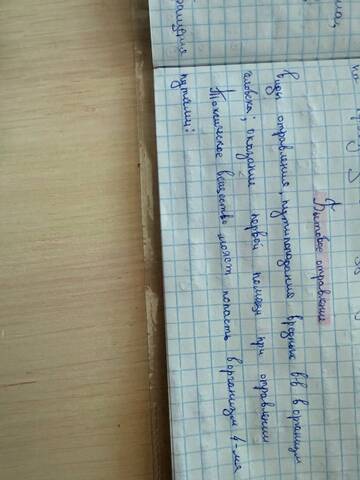 Бытовое отравление
Виды отравления, пути попадания вредных в-в в организм
человека; оказание первой помощи при отравлении
Токсическое вещество может попасть в организм 4-мя
путями: